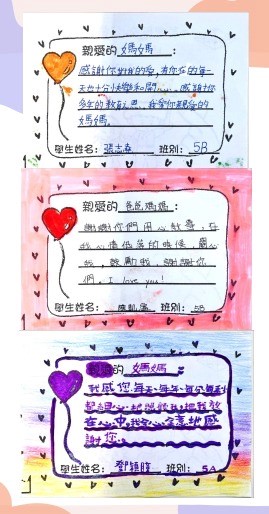 親愛的 媽媽 :
感謝你對我的愛,有你在的每一
天也十分快樂和開……感謝你
多年的教育之恩,我愛你親愛的
媽媽。
學生姓名: 張志森 班別: 5B
親愛的 爸爸媽媽 :
謝謝你們用心教導,在
我心情低落的時候,關心
我,鼓勵我,謝謝你
們。I love you!
學生姓名: 班別: 5B
的 媽媽
我感您每天每年每分每秒
在心中,我 心 意地感
謝您
學生姓名: 鄧穎 班別: 5A